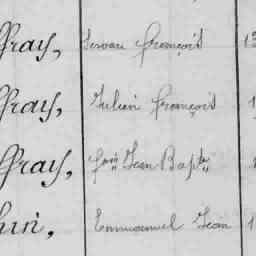 ffray, Servan françois 1
ffray, Julien françois 1
ffray, fois Jean Bapte 1
hin, Emmanuel Jean 1